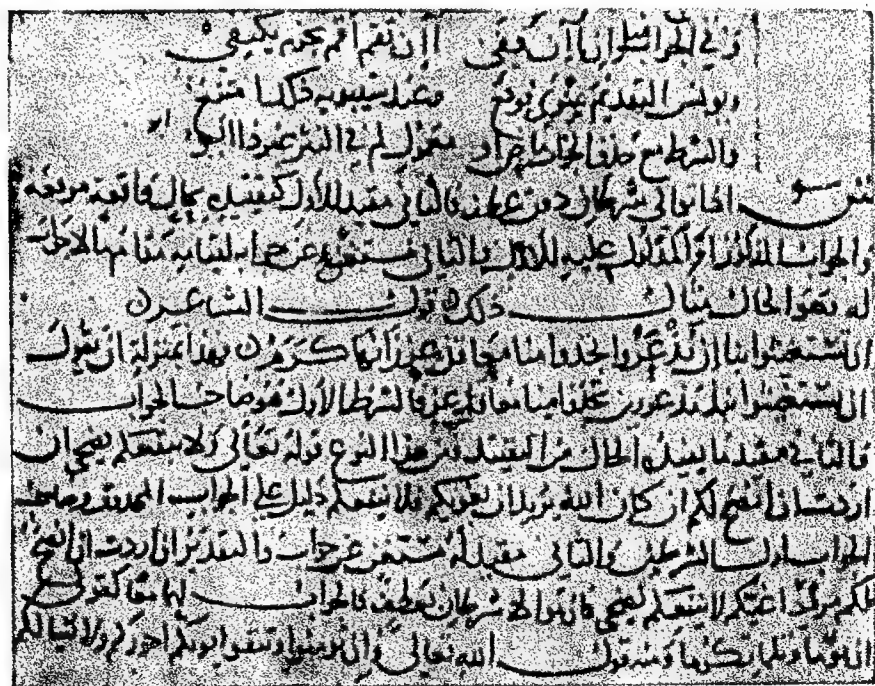 وفي الجواب انا ان تقم اقم بجزم يكتفي
ويونس التقديم ينوي وعند سيبويه ذلك امتنع
والشرط مع حذف لم في النثر
ش اذا توالى شرطان دون عطف فالثاني مقيد للاول كتقييده بحال واقعة موقعه
والجواب المذكور او المدلول عليه للاول والثاني مستغن عن جوابه لقيامه مقام ما لا جواب
له وهو الحال مثال ذلك قول الشاعر
ان تستغيثوا بنا ان تذعروا تجدوا منا معاقل عز زانها كرم فهذا بمنزلة ان يقول
ان تستغيثوا بنا مذعورين تجدوا منا معاقل عز فالشرط الاول هو صاحب الجواب
والثاني مفيد ما يفيده الحال من التقييد ومن هذا النوع قوله تعالى ولا ينفعكم نصحي ان
اردت ان انصح لكم ان كان الله يريد ان يغويكم فلا ينفعكم دليل على الجواب المحذوف وصاحب
الجواب اول الشرطين والثاني مقيد له مستغن عن جواب والتقدير ان اردت ان انصح
لكم مرادا غيكم لا ينفعكم نصحي فان توالى شرطان بعطف فالجواب لهما معا كقولي
ان تؤما وتلما تكرما ومنه قول الله تعالى وان تؤمنوا وتتقوا يؤتكم اجوركم ولا يسألكم